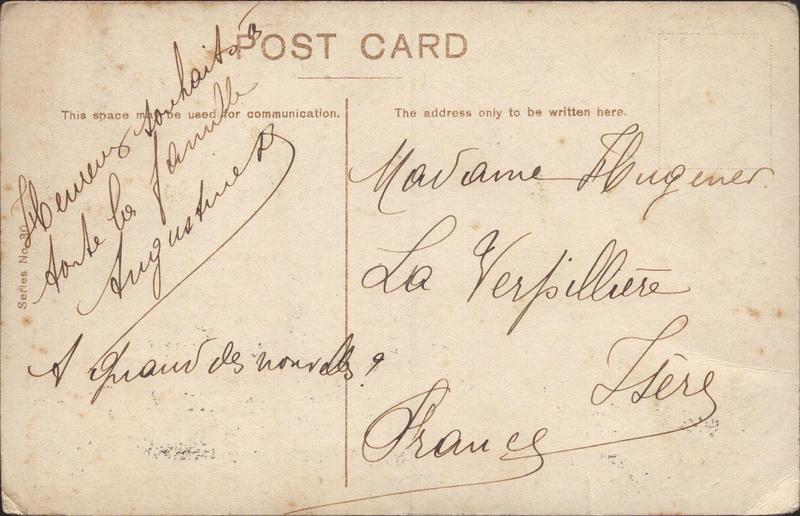 POST CARD
This space may be used for communication.
The address only to be written here.
Series No. 30
Heureux souhaits à
toute la famille
Augustine
A quand des nouvelles ?
Madame Hugener
La Verpillière
Isère
France